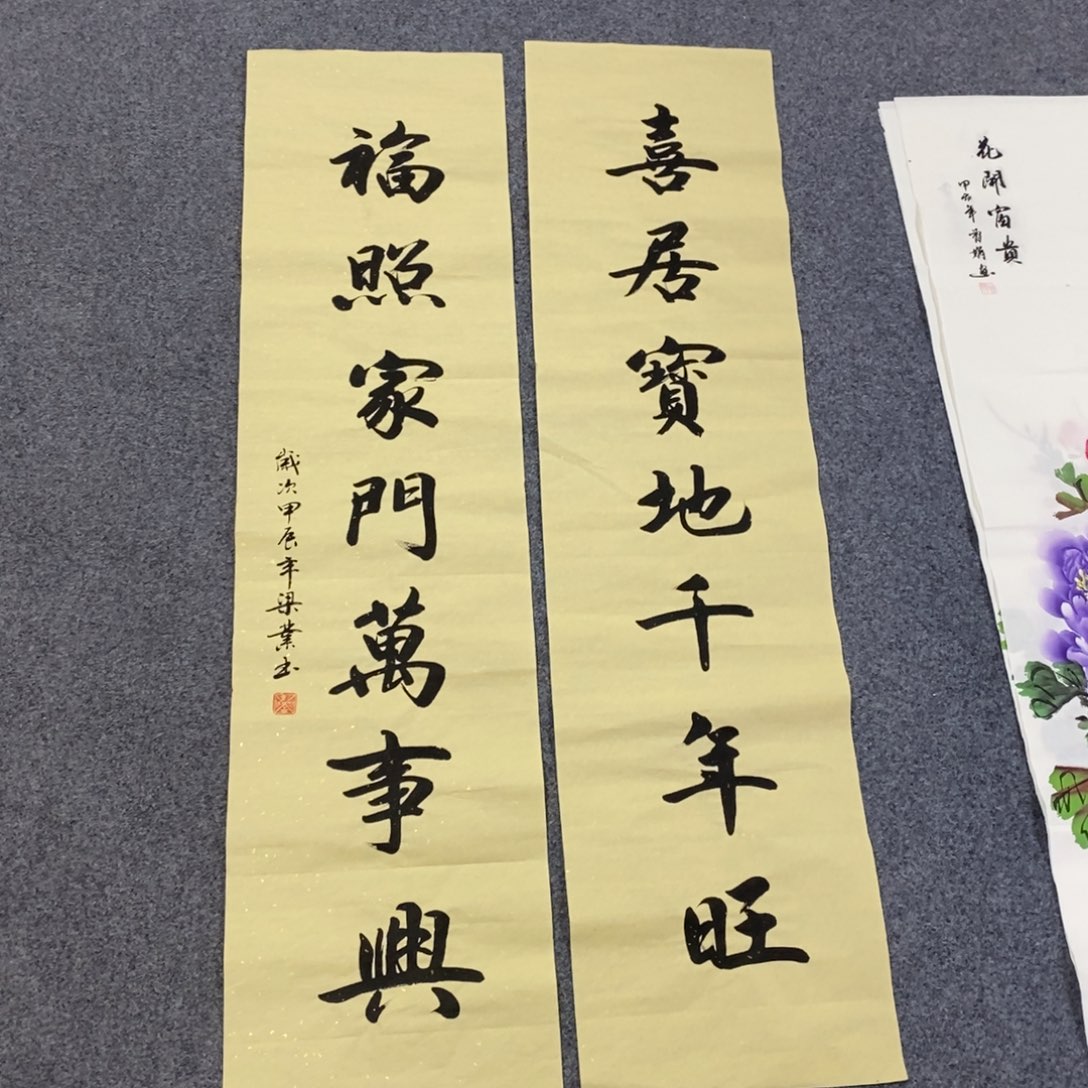 喜居寶地千年旺
福照家門萬事興
歲次甲辰年梁業书
花開富貴
甲辰年